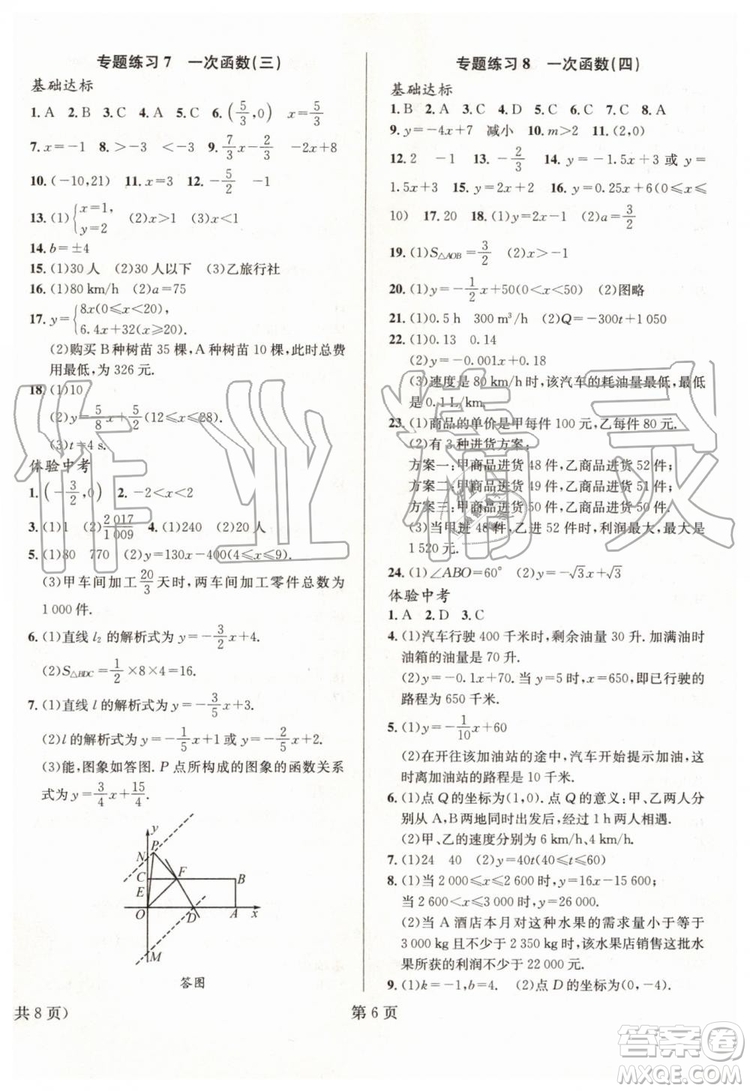 专题练习7 一次函数(三)
基础达标
1. A 2. B 3. C 4. A 5. C 6. (5/3,0)
7. x=-1 8. >-3 <-3 9. 7/3 -2/3 -2x+8
10. (-10,21) 11. 高 12. -5/2 -1
13. (1){x=1, y=2 (2)x<1
14. b=±4
15. (1)30 人 (2)30 人以下 (3)乙旅行社
16. (1)80 km/h (2)a=75
17. y={8x(0≤x≤20) 6.4x+32(x≥20)
(2)购买 B 种树苗 35 棵,A 种树苗 10 棵,此时总费
用最低,为 326 元.
18. (1)10
(2)y=5/8x+5/2(12≤x≤28).
(3)t=4 s.
体验中考
1. (-3/2,0) 2. -2<x<2
3. (1)1 (2)2 017/1 009 4. (1)240 (2)20
5. (1)80 770 (2)y=130x-400(4≤x≤9).
(3)甲车间加工20/3天时,两车间加工零件总数为
1 000 件.
6. (1)直线 l₂ 的解析式为 y=-3/2x+6
(2)S△BDC=1/2×8×4=16.
7. (1)直线 l 的解析式为 y=-3/5x+3
(2)l 的解析式为 y=-1/5x+2 或 y=-x+6
(3)能,图象如答图. P 点所构成的图象的函数关系
式为 y=3/4x+15/4
y
P
N
C
F
B
E
O
D
A
x
M
答图
共 8 页)
专题练习8 一次函数(四)
基础达标
1. B 2. A 3. C 4. D 5. C 6. C 7. C 8. A
9. y=-4x+7 减小 10. m>2 11. (2,0)
12. 2 -1 13. -2/3 14. y=-1.5x+3 或 y=
1.5x+3 15. y=2x+1 16. y=0.25x+6(0≤x≤
10) 17. 20 18. (1)y=2x-2 (2)a=3/2
19. (1)S△AOB=3/2 (2)x>-1
20. (1)y=-1/2x+50 (2)图略
21. (1)0.5 h 300 m³ (2)Q=-300t+1 050
22. (1)0.13 0.14
(2)y=-0.001x+0.18
(3)速度是 80 km/h 时,该汽车的耗油量最低,最低
是 0.1 L/km.
23. (1)商品的单价是甲每件 100 元,乙每件 80 元.
(2)有 3 种进货方案.
方案一:甲商品进货 48 件,乙商品进货 52 件;
方案二:甲商品进货 49 件,乙商品进货 51 件;
方案三:甲商品进货 50 件,乙商品进货 50 件.
(3)当甲进 48 件,乙进 52 件时,利润最大,最大是
1 520 元.
24. (1)∠ABO=60° (2)y=-√3x+√3
体验中考
1. A 2. D 3. C
4. (1)汽车行驶 400 千米时,剩余油量 30 升. 加满油时
油箱的油量是 70 升.
(2)y=-0.1x+70. 当 y=5 时,x=650,即已行驶的
路程为 650 千米.
5. (1)y=-1/10x+60
(2)在开往该加油站的途中,汽车开始提示加油,这
时离加油站的路程是 10 千米.
6. (1)点 Q 的坐标为(1,0). 点 Q 的意义:甲、乙两人
分别从 A、B 两地同时出发后,经过 1 个小时两人相遇.
(2)甲、乙的速度分别为 6 km/h、4 km/h.
7. (1)24 40 (2)y=40t(0≤t≤60)
8. (1)当 2 000≤x≤2 600 时,y=10x-6(2 600-x)
(2)当 A 酒店本月对这种水果的需求量小于等于
3 000 kg且不少于 2 350 kg时,该水果店销售这批水
果所获的利润不少于 22 000 元.
9. (1)k=-1,b=4 (2)点 D 的坐标为(0,-4).
第 6 页
作业精灵
答案圈
MXQE.COM